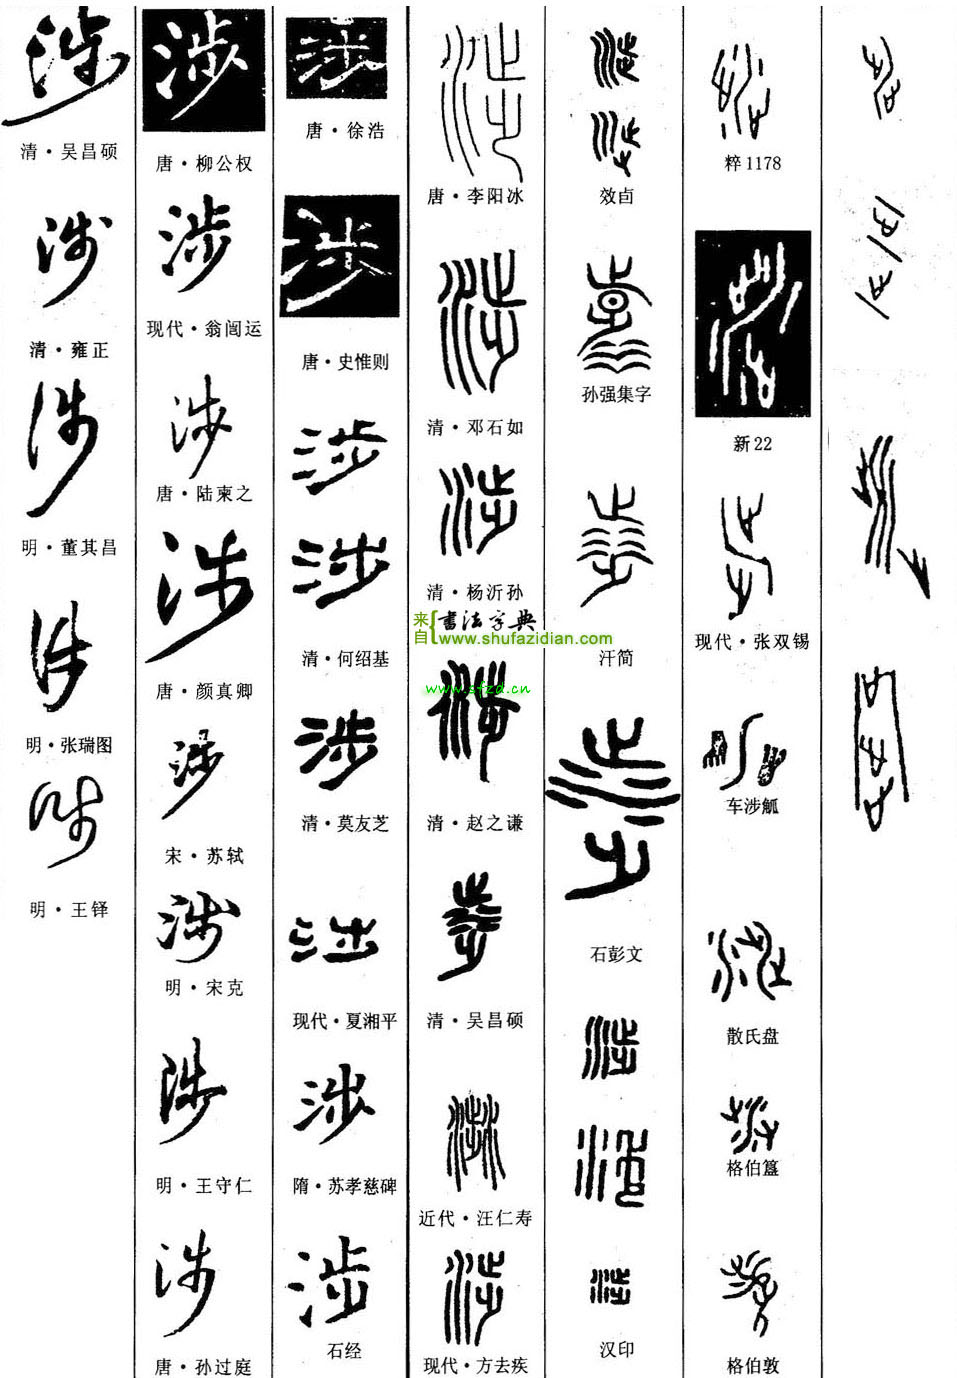 涉
清·吴昌硕
涉
清·雍正
涉
明·董其昌
涉
明·张瑞图
涉
明·王铎
涉
唐·柳公权
涉
现代·翁闿运
涉
唐·陆柬之
涉
唐·颜真卿
涉
宋·苏轼
涉
明·宋克
涉
明·王守仁
涉
唐·孙过庭
涉
唐·徐浩
涉
唐·史惟则
涉
涉
清·何绍基
涉
清·莫友芝
涉
现代·夏湘平
涉
隋·苏孝慈碑
涉
石经
涉
唐·李阳冰
涉
清·邓石如
涉
清·杨沂孙
来自{書法字典
www.shufazidian.com
www.sfzd.cn
涉
清·赵之谦
涉
清·吴昌硕
涉
近代·汪仁寿
涉
现代·方去疾
涉
涉
效卣
涉
孙强集字
涉
汗简
涉
石彭文
涉
涉
涉
汉印
涉
粹1178
涉
新22
涉
现代·张双锡
涉
车涉觚
涉
散氏盘
涉
格伯簋
涉
格伯敦